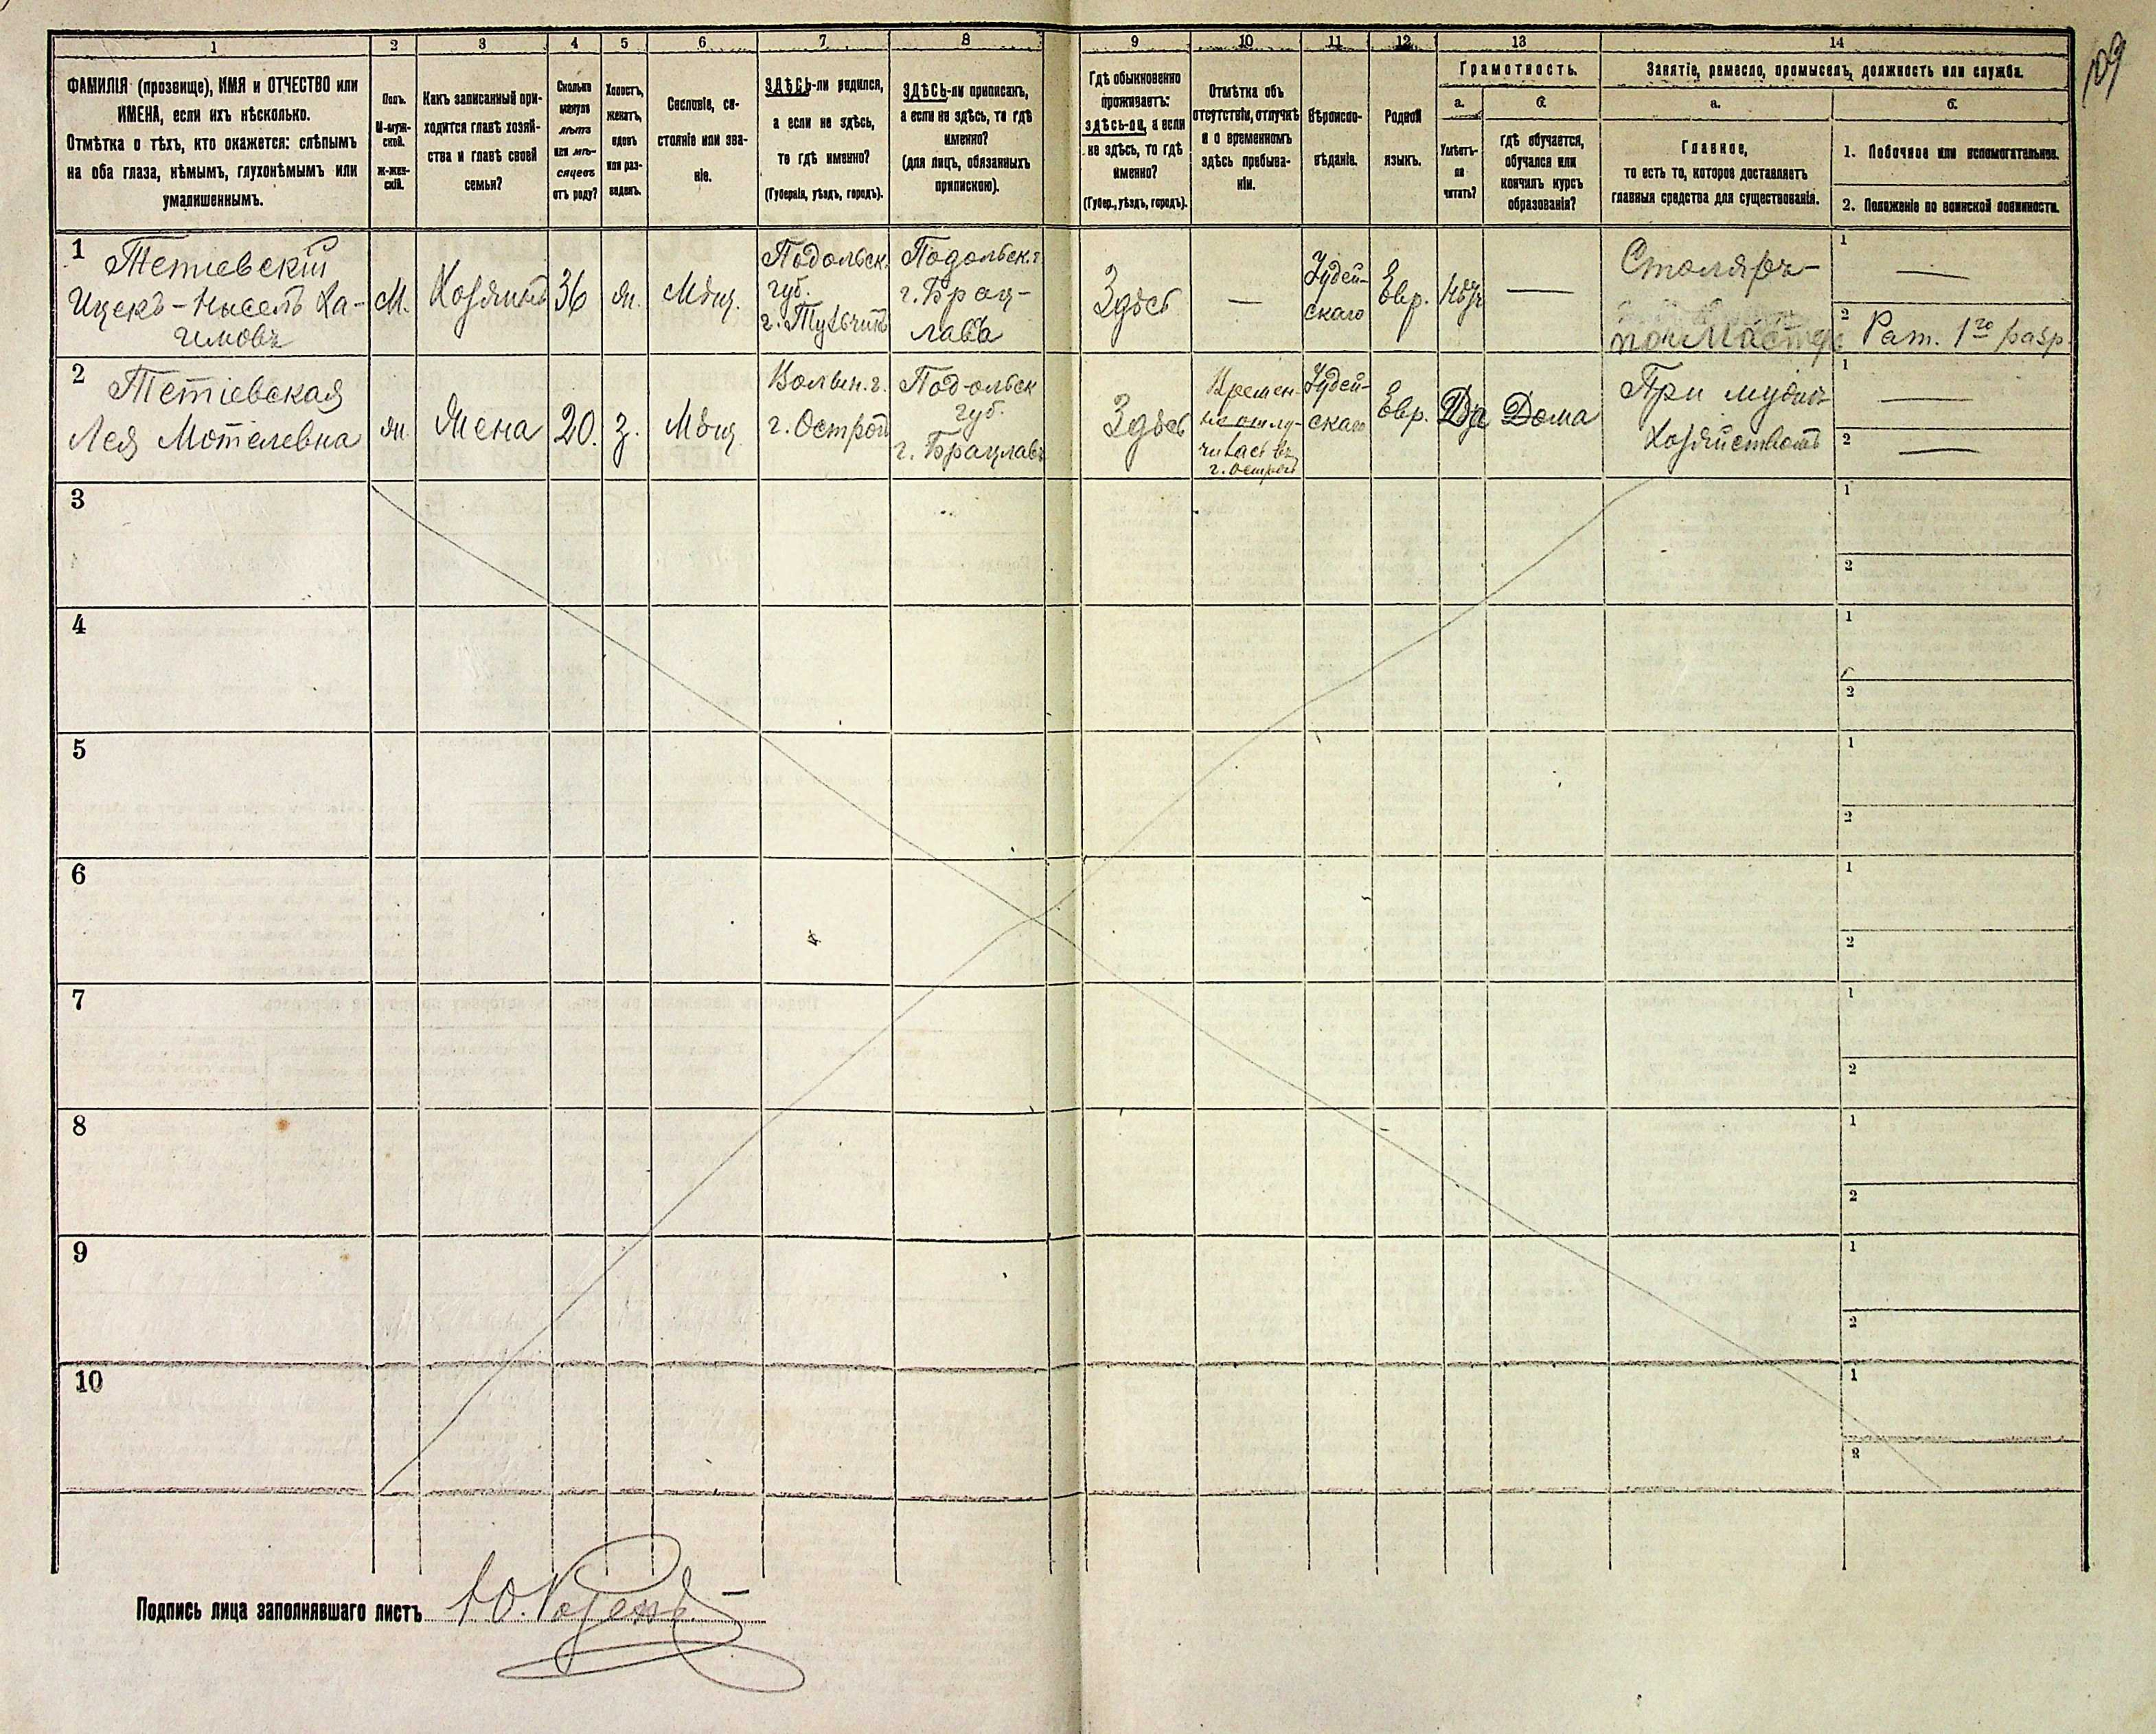 109
1 2 3 4 5 6 7 8 9 10 11 12 13 14
ФАМИЛІЯ (прозвище), ИМЯ и ОТЧЕСТВО или
ИМЕНА, если ихъ нѣсколько.
Отмѣтка о тѣхъ, кто окажется: слѣпымъ
на оба глаза, нѣмымъ, глухонѣмымъ или
умалишеннымъ.
Полъ.
М-муж-
ской.
Ж-жен-
скій.
Какъ записанный при-
ходится главѣ хозяй-
ства и главѣ своей
семьи?
Сколько
минуло
лѣтъ
или мѣ-
сяцевъ
отъ роду?
Холостъ,
женатъ,
вдовъ
или раз-
веденъ.
Сословіе, со-
стояніе или зва-
ніе.
ЗДѢСЬ-ли родился,
а если не здѣсь,
то гдѣ именно?
(Губернія, уѣздъ, городъ).
ЗДѢСЬ-ли приписанъ,
а если не здѣсь, то гдѣ
именно?
(для лицъ, обязанныхъ
припискою).
Гдѣ обыкновенно
проживаетъ:
здѣсь-ли, а если
не здѣсь, то гдѣ
именно?
(Губер., уѣздъ, городъ).
Отмѣтка объ
отсутствіи, отлучкѣ
и о временномъ
здѣсь пребыва-
ніи.
Вѣроиспо-
вѣданіе.
Родной
языкъ.
Грамотность.
а.
Умѣетъ-
ли
читать?
б.
гдѣ обучается,
обучался или
кончилъ курсъ
образованія?
Занятіе, ремесло, промыселъ, должность или служба.
а.
Главное,
то есть то, которое доставляетъ
главныя средства для существованія.
б.
1. Побочное или вспомогательное.
2. Положеніе по воинской повинности.
1
Тетіевскій
Ицекъ-Нысель Ха-
имовъ
М.
Хозяинъ
36
ж.
Мѣщ.
Подольск.
губ.
г. Тульчинъ
Подольск. г.
г. Брац-
лавъ
Здѣсь
—
Іудей-
скаго
Евр.
—
Столяръ-
1
—
2
Рат. 1го разр.
2
Тетіевская
Лея Мотелевна
ж.
Жена
20.
з.
Мѣщ.
Волын. г.
г. Острогъ
Подольск
губ.
г. Брацлавъ
Здѣсь
Времен-
но отлу-
чилась въ
г. Острогъ
Іудей-
скаго
Евр.
Да
Дома
При мужѣ
Хозяйствомъ
1
—
2
—
3
1
2
4
1
2
5
1
2
6
1
2
7
1
2
8
1
2
9
1
2
10
1
2
Подпись лица заполнявшаго листъ